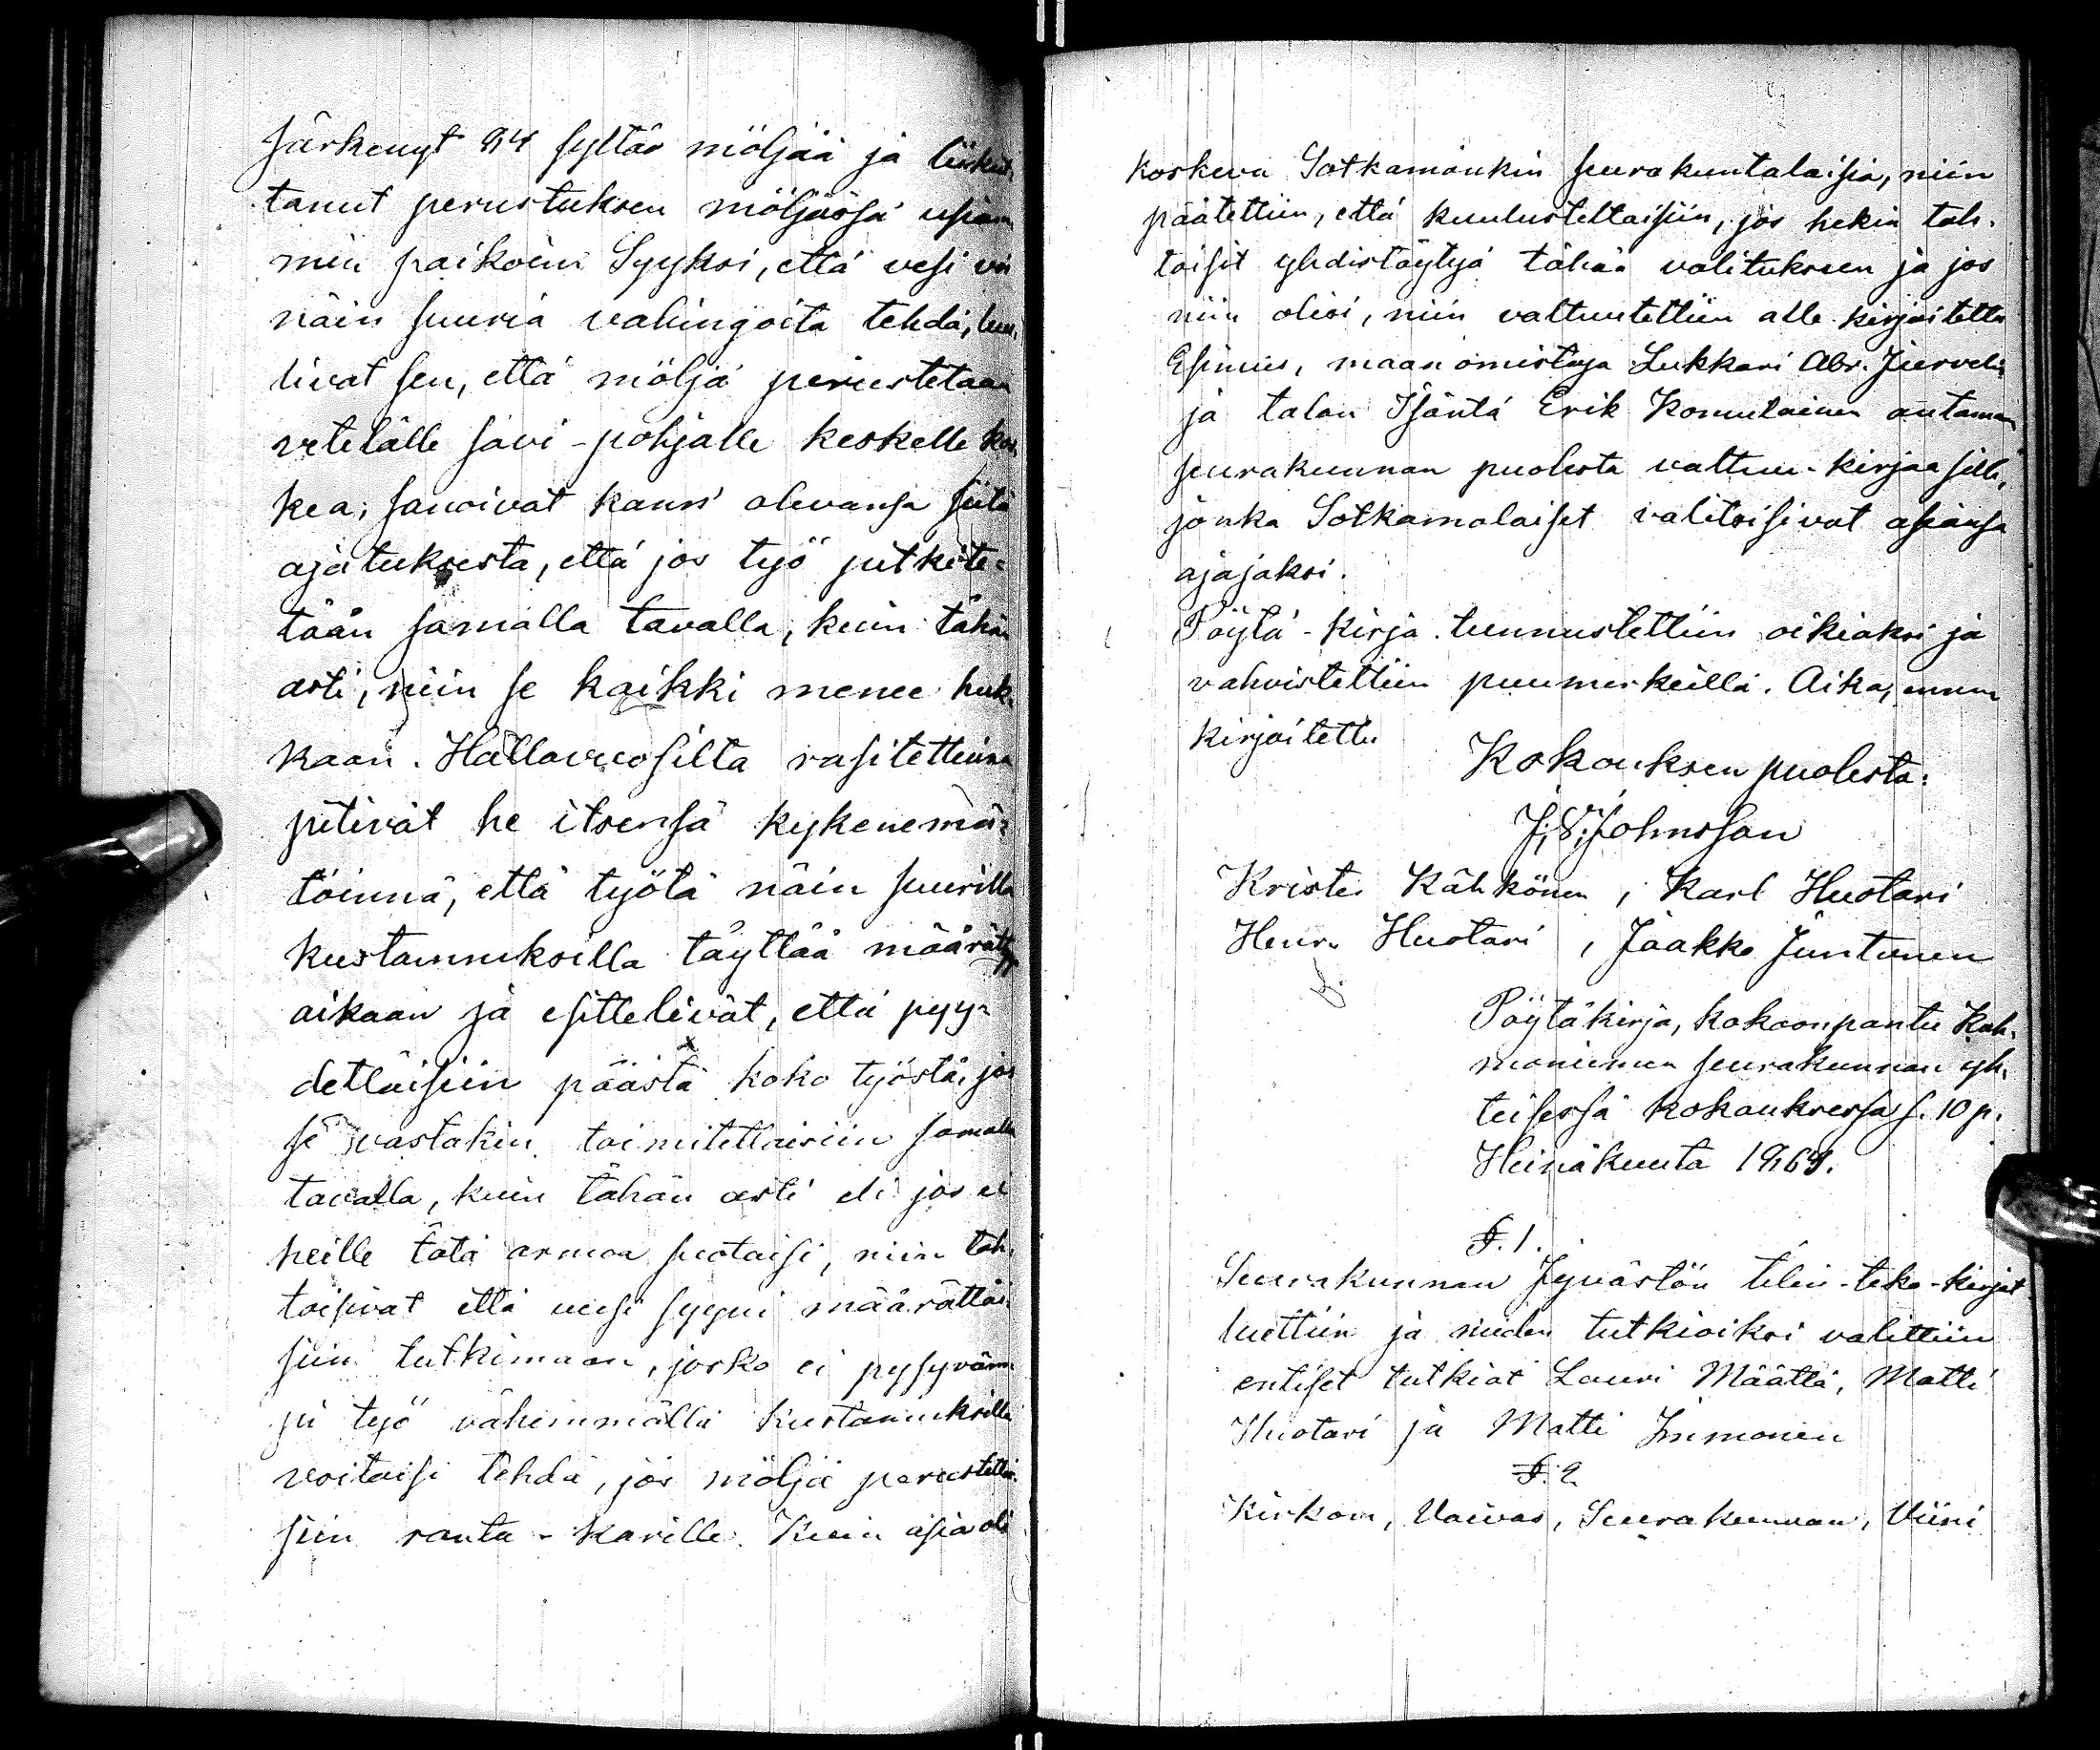 särkenyt 84 syltää möljää ja liikut-
tanut perustuksen möljässä usiam
min paikoin Syyksi, että vesi voi
näin suuria vahingoita tehdä, luu-
livat sen, että möljä perustetaan
vetelälle savi-pohjalle keskelle kos-
kea; sanoivat kans' olevansa siitä
ajatuksesta, että jos työ pitkite-
tään samalla tavalla, kuin tähän
asti, niin se kaikki menee huk-
kaan. Hallavuosilta rasitettuina
pitivät he itsensä kykenemä-
töinnä, että työtä näin suurilla
kustannuksilla täyttää määrätty
aikaan ja esittelivät, että pyy-
dettäisiin päästä koko työstä, jos
se vastakin toimitettaisiin samalla
tavalla, kuin tähän asti eli jos ei
heille tätä armoa suotaisi, niin tah-
toisivat että uusi syyni määrättäi-
siin tutkimaan, josko ei pysyväm-
pi työ vähemmällä kustannuksilla
voitaisi tehdä, jos möljä perustettai-
siin ranta-karille. Kuin asia oli
koskeva Sotkamonkin seurakuntalaisia, niin
päätettiin, että kuulusteltaisiin, jos hekin tah-
toisit yhdistäytyä tähän valitukseen ja jos
niin olisi, niin valtuutettiin alle kirjoitettu
Esimies, maan omistaja Lukkari Abr. Järvelin
ja talon Isäntä Erik Komulainen antamaan
seurakunnan puolesta valtuu-kirjaa sille,
jonka Sotkamolaiset valitsisivat asiansa
ajajaksi.
Pöytä-kirja tunnustettiin oikiaksi ja
vahvistettiin puumerkeillä. Aika, ennen
kirjoitettu
Kokouksen puolesta:
J. V. Johnsson
Krister Kähkönen, Karl Huotari
Henr. Huotari, Jaakko Juntunen
Pöytäkirja, kokoonpantu Kuh-
moniemen seurakunnan yh-
teisessä kokouksessa s. 10 p.
Heinäkuuta 1864.
§. 1.
Seurakunnan Jyvästön tilin-teko-kirjat
luettiin ja niiden tutkioiksi valittiin
entiset tutkiat Lauri Määttä, Matti
Huotari ja Matti Immonen
§. 2.
Kirkon, Vaivas, Seurakunnan, Viini